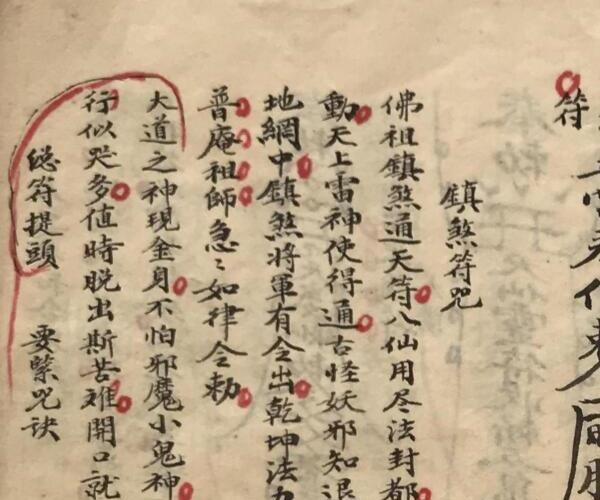 符
鎮煞符咒
佛祖鎮煞通天符八仙用尽法封都
動天上雷神使得通古怪妖邪知退
地網中鎮煞將軍有令出乾坤法力
普庵祖師急〻如律令勅
大道之神現金身不怕邪魔小鬼神
行似咒多值時脱出斯苦难開口就
總符提頭 要緊咒訣